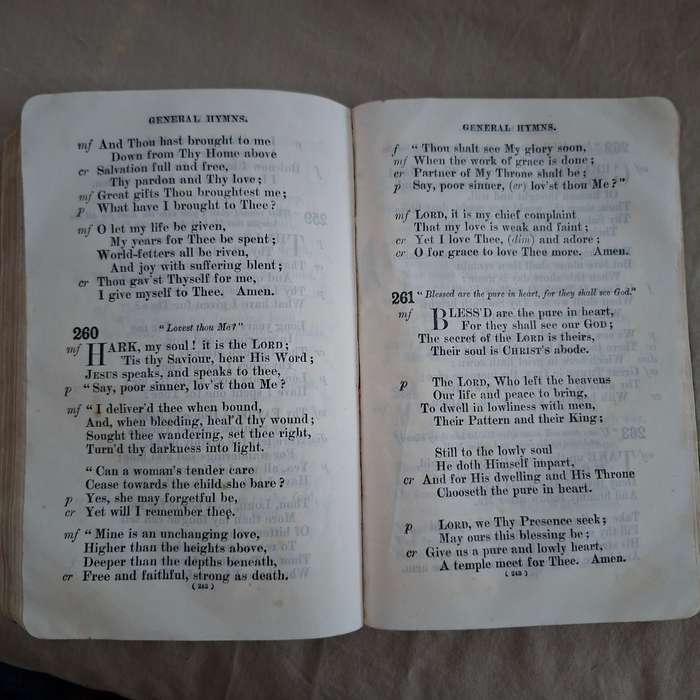 GENERAL HYMNS.
mf And Thou hast brought to me
Down from Thy Home above
cr Salvation full and free,
Thy pardon and Thy love;
mf Great gifts Thou broughtest me;
p What have I brought to Thee?
mf O let my life be given,
My years for Thee be spent;
World-fetters all be riven,
And joy with suffering blent;
cr Thou gav'st Thyself for me,
I give myself to Thee. Amen.
260 "Lovest thou Me?"
mf HARK, my soul! it is the LORD;
'Tis thy Saviour, hear His Word;
JESUS speaks, and speaks to thee,
p "Say, poor sinner, lov'st thou Me?
mf "I deliver'd thee when bound,
And, when bleeding, heal'd thy wound;
Sought thee wandering, set thee right,
Turn'd thy darkness into light.
"Can a woman's tender care
Cease towards the child she bare?
p Yes, she may forgetful be,
cr Yet will I remember thee.
mf "Mine is an unchanging love,
Higher than the heights above,
Deeper than the depths beneath,
cr Free and faithful, strong as death.
GENERAL HYMNS.
f "Thou shalt see My glory soon,
mf When the work of grace is done;
cr Partner of My Throne shalt be;
p Say, poor sinner, (cr) lov'st thou Me?"
mf LORD, it is my chief complaint
That my love is weak and faint;
cr Yet I love Thee, (dim) and adore;
cr O for grace to love Thee more. Amen.
261 "Blessed are the pure in heart, for they shall see God."
mf BLESS'D are the pure in heart,
For they shall see our GOD;
The secret of the LORD is theirs,
Their soul is CHRIST'S abode.
p The LORD, Who left the heavens
Our life and peace to bring,
To dwell in lowliness with men,
Their Pattern and their King;
Still to the lowly soul
He doth Himself impart,
cr And for His dwelling and His Throne
Chooseth the pure in heart.
p LORD, we Thy Presence seek;
May ours this blessing be;
cr Give us a pure and lowly heart,
A temple meet for Thee. Amen.